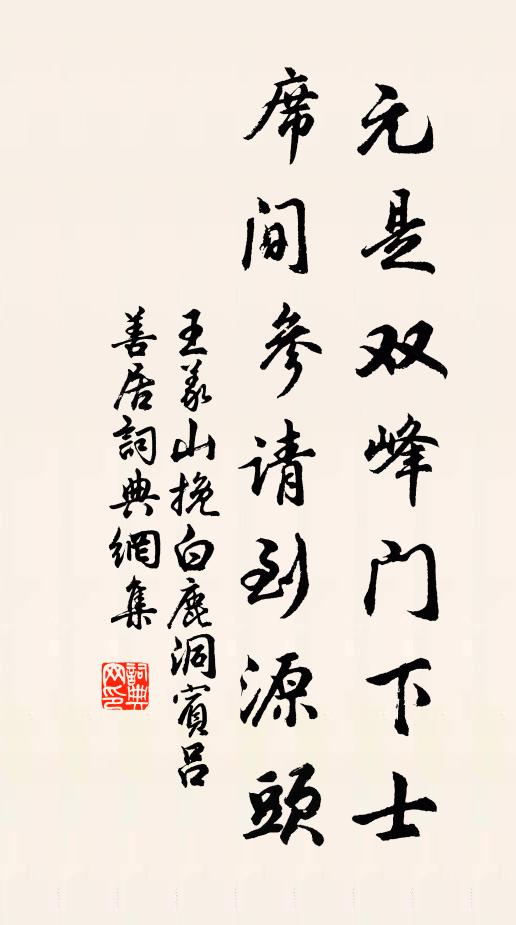 元是双峰门下士
席间参请到源头
王义山挽白鹿洞宾吕
善居詞典網集
詞典网印